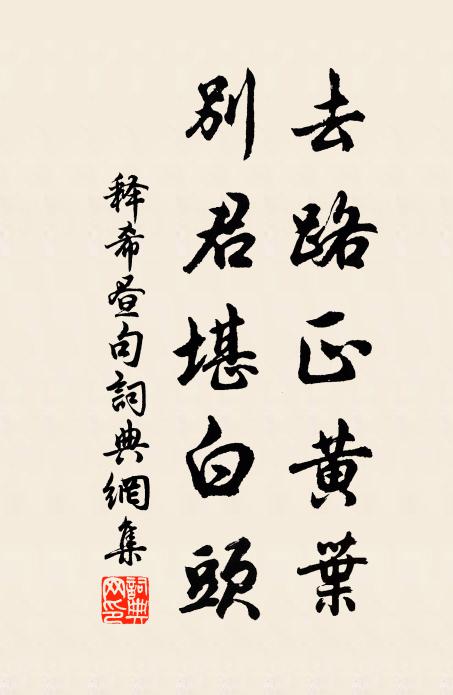 去路正黄葉
别君堪白頭
释希昼句詞典網集
詞典网印